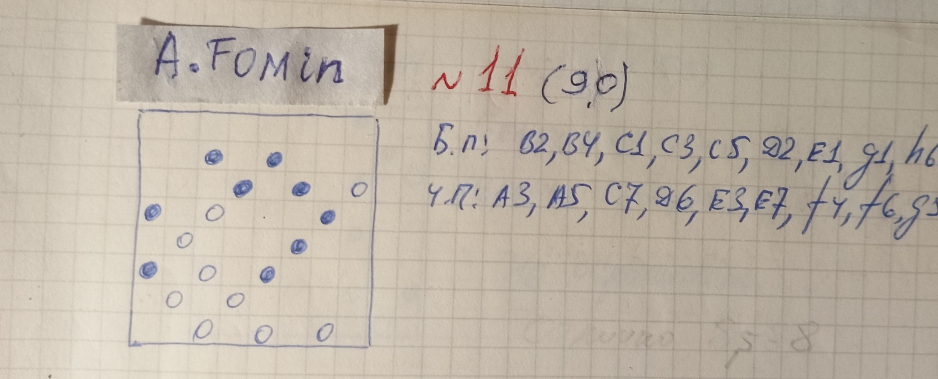 A. Fomin
№ 11 (9,0)
Б.п: B2, B4, C1, C3, C5, D2, E1, g1, h6
Ч.П: A3, A5, C7, D6, E3, E7, f4, f6, g5